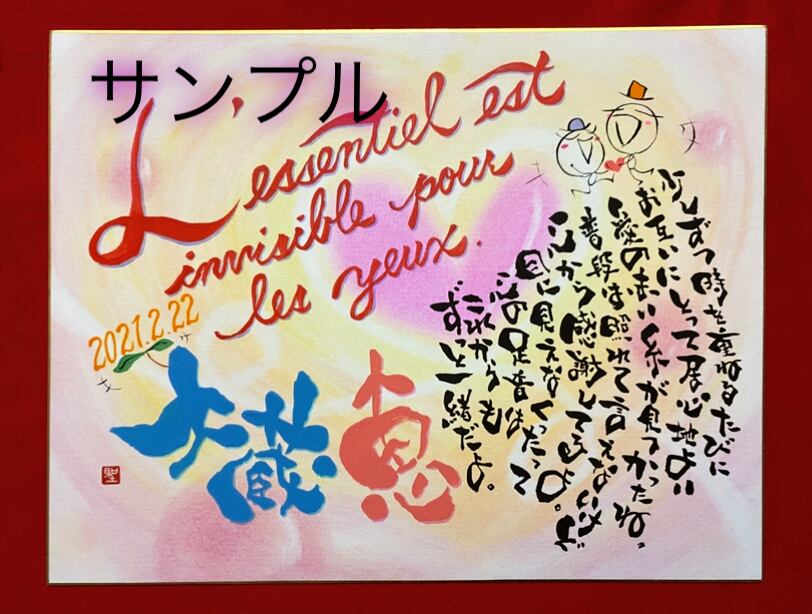 サンプル
L'essentiel est
invisible pour
les yeux.
2021.2.22
大蔵 恵
聖
少しずつ時を重ねるたびに
お互いにとって居心地よい
愛の赤い糸が見つかったね。
普段は照れて言えないけど
心から感謝してるよ。
目に見えなくったって
心の足音は
これからも
ずっと一緒だよ。